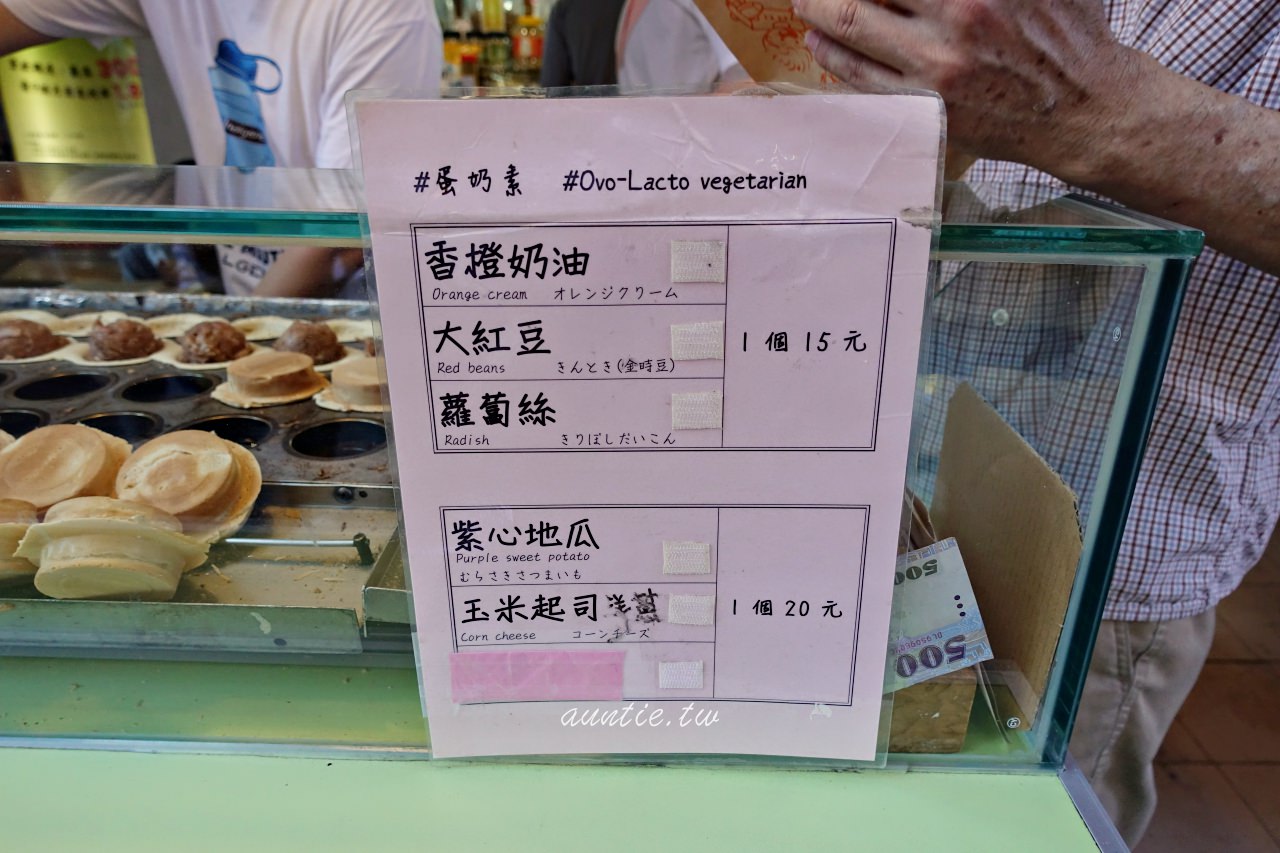 #蛋奶素 #Ovo-Lacto vegetarian
香橙奶油
Orange cream オレンジクリーム
大紅豆
Red beans きんとき(金時豆)
蘿蔔絲
Radish きりぼしだいこん
1個15元
紫心地瓜
Purple sweet potato
むらさきさつまいも
玉米起司
Corn cheese コーンチーズ
1個20元
auntie.tw
500
500